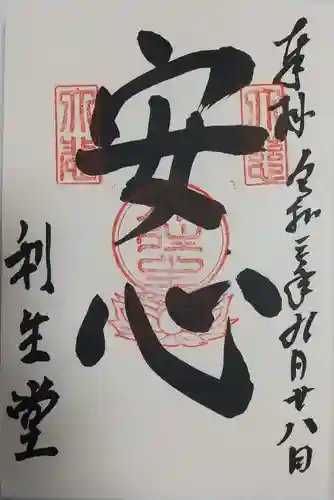 奉拝 令和三年九月廿八日
安心
利生堂